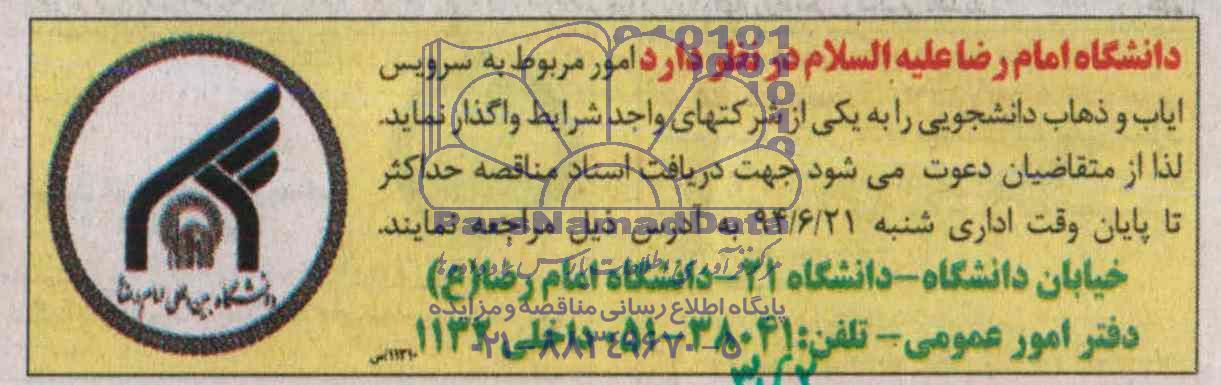 دانشگاه امام رضا علیه السلام در نظر دارد امور مربوط به سرویس
ایاب و ذهاب دانشجویی را به یکی از شرکتهای واجد شرایط واگذار نماید.
لذا از متقاضیان دعوت می شود جهت دریافت اسناد مناقصه حداکثر
تا پایان وقت اداری شنبه ۹۴/۶/۲۱ به آدرس ذیل مراجعه نمایند.
خیابان دانشگاه–دانشگاه ۲۱–دانشگاه امام رضا(ع)
دفتر امور عمومی– تلفن:۳۸۰۴۱–۰۵۱ داخلی ۱۱۳۲
دانشگاه بین المللی امام رضا
ParsNamadData
پایگاه اطلاع رسانی مناقصه و مزایده
۰۲۱-۸۸۳۴۹۶۷۰-۵